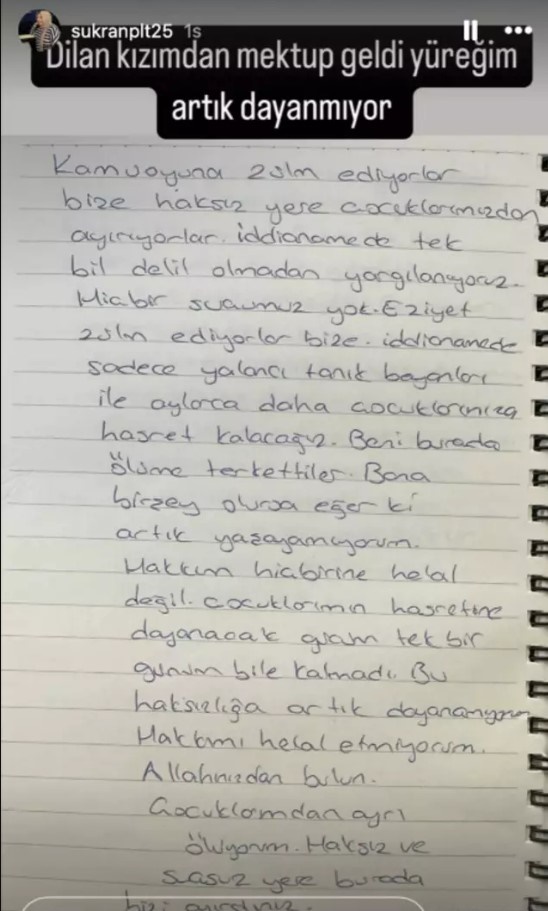 sukranplt25 1s
Dilan kızımdan mektup geldi yüreğim
artık dayanmıyor
Kamuoyuna zulm ediyorlar
bize haksız yere çocuklarımızdan
ayırıyorlar. iddianamede tek
bil delil olmadan yargılanıyoruz.
Hiçbir suçumuz yok. Eziyet
zulm ediyorlar bize. iddianamede
sadece yalancı tanık beyanları
ile aylarca daha çocuklarımıza
hasret kalacağız. Beni burada
ölüme terkettiler. Bana
birşey olursa eğer ki
artık yaşayamıyorum.
Hakkım hiçbirine helal
değil. çocuklarımın hasretine
dayanacak gram tek bir
günüm bile kalmadı. Bu
haksızlığa artık dayanamıyorum
Hakkımı helal etmiyorum.
Allahınızdan bulun.
Çocuklarımdan ayrı
ölüyorum. Haksız ve
suçsuz yere burada
bizi ayırdınız.